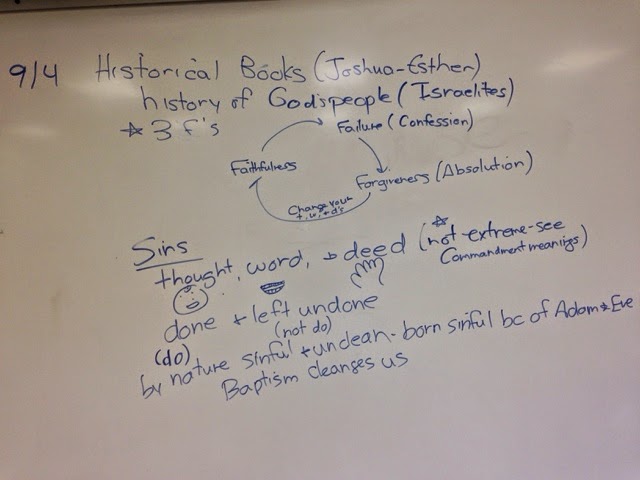 9/4 Historical Books (Joshua-Esther)
history of God's people (Israelites)
☆ 3 F's
Failure (Confession)
Faithfulness
Forgiveness (Absolution)
Change your
t, w, + d's
Sins
thought, word, + deed (not extreme-see
Commandment meanings)
done + left undone
(do) (not do)
by nature sinful + unclean - born sinful bc of Adam + Eve
Baptism cleanses us